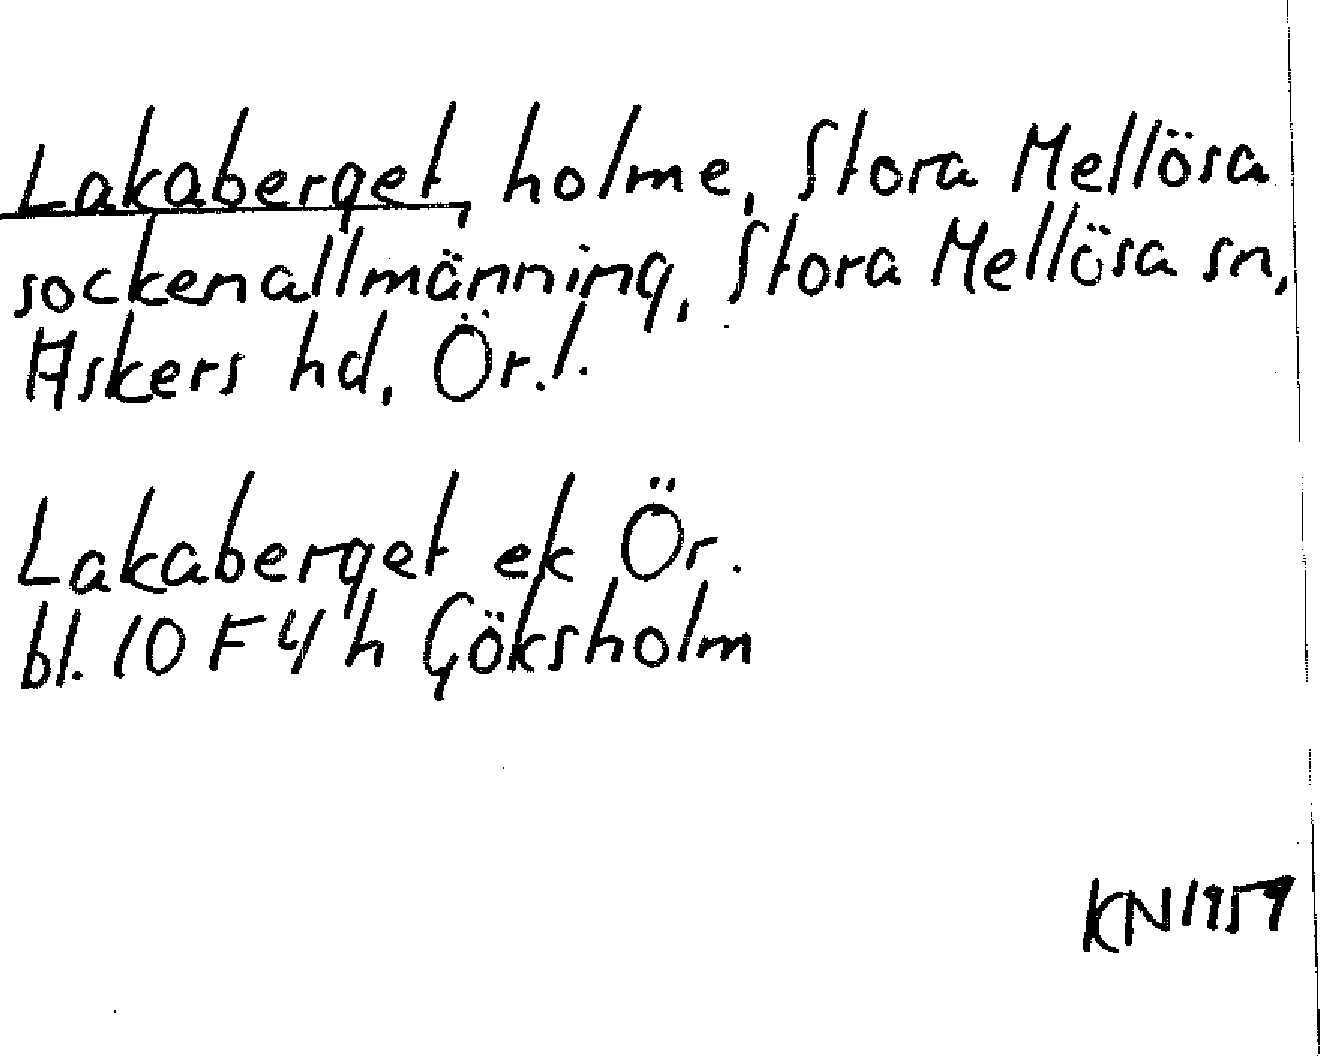 Lakaberget, holme, Stora Mellösa
sockenallmänning, Stora Mellösa sn,
Askers hd, Ör. l.
Lakaberget ek Ör.
bl. 10 F 4 h Göksholm
KN 1959